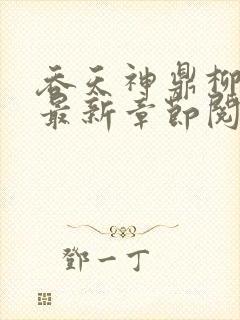 吞天神鼎柳
最新章节阅
鄧一丁